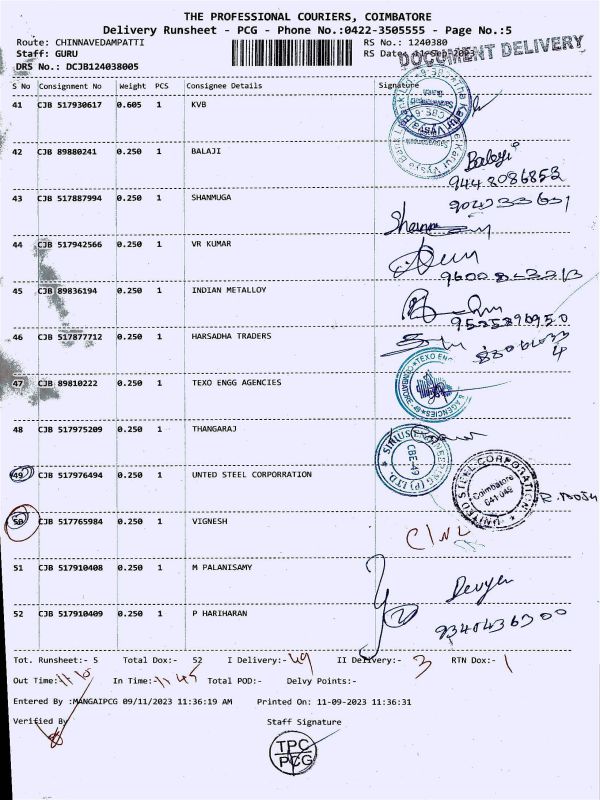 THE PROFESSIONAL COURIERS, COIMBATORE
Delivery Runsheet - PCG - Phone No.:0422-3505555 - Page No.:5
Route: CHINNAVEDAMPATTI RS No.: 1240380
Staff: GURU RS Date: 11-Sep-2023
DOCUMENT DELIVERY
DRS No.: DCJB124038005
S No Consignment No Weight PCS Consignee Details Signature
41 CJB 517930617 0.605 1 KVB
42 CJB 89880241 0.250 1 BALAJI
Balaji
9448086852
43 CJB 517887994 0.250 1 SHANMUGA
44 CJB 517942566 0.250 1 VR KUMAR
45 CJB 89836194 0.250 1 INDIAN METALLOY
9535890950
46 CJB 517877712 0.250 1 HARSADHA TRADERS
47 CJB 89810222 0.250 1 TEXO ENGG AGENCIES
48 CJB 517975209 0.250 1 THANGARAJ
SIRIUS ENGINEERING (P) LTD.
CBE-49
49 CJB 517976494 0.250 1 UNTED STEEL CORPORRATION
UNITED STEEL CORPORATION
Coimbatore
641 049
50 CJB 517765984 0.250 1 VIGNESH
51 CJB 517910408 0.250 1 M PALANISAMY
52 CJB 517910409 0.250 1 P HARIHARAN
Tot. Runsheet:- 5 Total Dox:- 52 I Delivery:- 49 II Delivery:- 3 RTN Dox:- 1
Out Time: In Time: 11 45 Total POD:- Delvy Points:-
Entered By :MANGAIPCG 09/11/2023 11:36:19 AM Printed On: 11-09-2023 11:36:31
Verified By Staff Signature
TPC
PCG